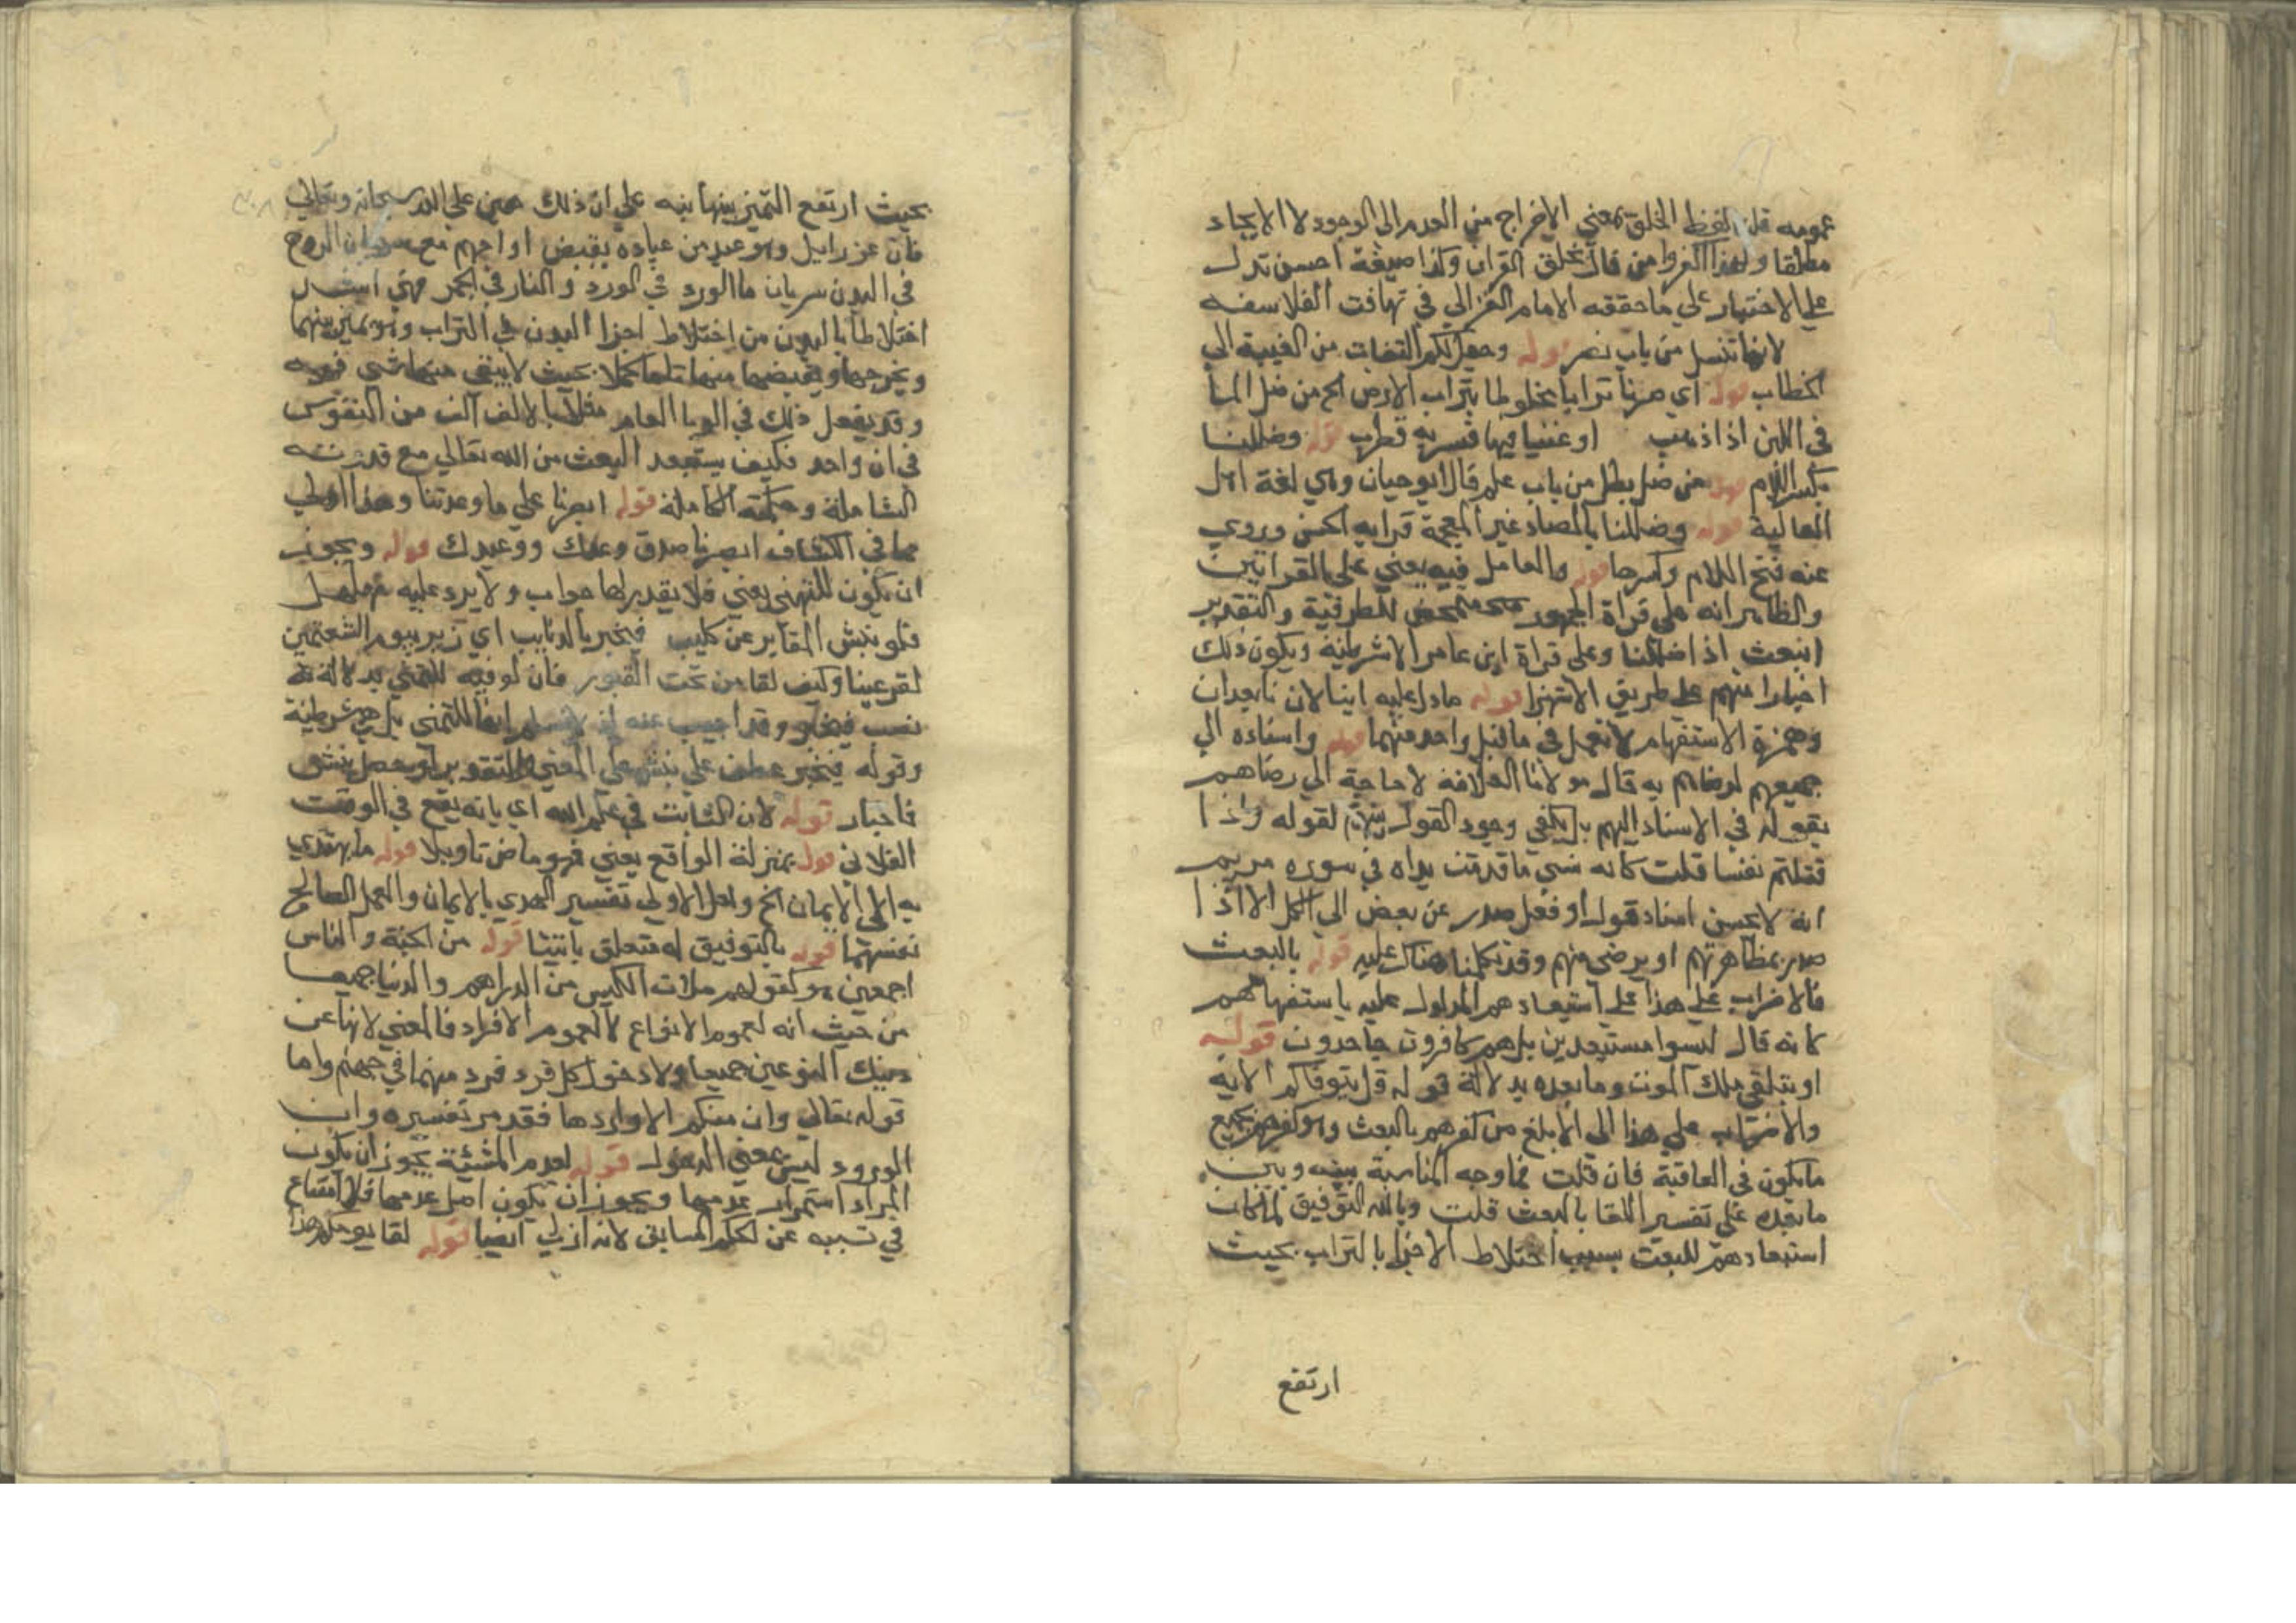 عمومه قلنا لفظ الخلق بمعني الاخراج من العدم الى الوجود لا الايجاد
مطلقا ولهذا اكفروا من قال بخلق القران وكذا صيغة احسن تدل
علي الاختيار علي ماحققه الامام الغزالي في تهافت الفلاسفه
لانها تنسل من باب نصر قوله وجعل لكم التفات من الغيبة الي
الخطاب قوله اي صرنا ترابا مخلوطا بتراب الارض الخ من ضل الما
في اللبن اذا ذهب او غبنا فيها فسر به قطرب قوله وضللنا
بكسر اللام قوله من ضل يضل من باب علم قال ابو حيان وهي لغة اهل
العالية قوله وصللنا بالصاد غير المعجمة قرا به الحسن وروي
عنه فتح اللام وكسرها قوله والعامل فيه يعني على القراتين
والظاهر انه علي قراة الجمهور متمحض للظرفية والتقدير
انبعث اذا ضللنا وعلى قراة ابن عامر الاشرطية ويكون ذلك
اخبارا منهم علي طريق الاستهزا قوله مادل عليه اينا لان مابعد ان
وهمزة الاستفهام لا تعمل في ماقبل واحد منهما قوله واسناده الي
جميعهم لرضاهم به قال مولانا العلامة لا حاجة الي رضاهم
بقوله في الاسناد اليهم بل يكفي وجود القول بينهم لقوله واذا
قتلتم نفسا قلت كانه نسي ماقدمت يداه في سوره مريم
انه لا يحسن اسناد قول او فعل صدر عن بعض الي الكل الا اذا
صدر بمظاهرتهم او برضي منهم وقد تكلمنا هناك عليه قوله بالبعث
فالاضراب علي هذا علي استبعادهم المدلول عليه باستفهامهم
كانه قال ليسوا مستبعدين بل هم كافرون جاحدون قوله
او بتلقي ملك الموت ومابعده بدلالة قوله قل يتوفاكم الايه
والاضراب علي هذا الي الابلغ من كفرهم بالبعث وهو كفرهم بجميع
مايكون في العاقبة فان قلت فما وجه المناسبة بينه وبين
مابعده علي تفسير اللقا بالبعث قلت وبالله التوفيق لما كان
استبعادهم للبعث بسبب اختلاط الاجزا بالتراب بحيث
ارتفع
بحيث ارتفع التميز بينها نبه علي ان ذلك هين علي الله سبحانه وتعالي
فان عزرايل وهو عبد من عباده يقبض ارواحهم مع سريان الروح
في البدن سريان ما الورد في الورد والنار في الجمر فهي اشد
اختلاطا بالبدن من اختلاط اجزا البدن في التراب وهو يميز بينهما
ويخرجها ويقبضها منها تماما كملا بحيث لا يبقي منها شي فيه
وقد يفعل ذلك في الوبا العام مثلا بالالف الف من النفوس
في ان واحد فكيف يستبعد البعث من الله تعالي مع قدرته
الشاملة وحكمته الكاملة قوله ابصرنا علي ما وعدتنا وهذا اولي
مما في الكشاف ابصرنا صدق وعدك ووعيدك قوله ويجوز
ان يكون للتمني يعني فلا يقدر لها جواب ولا يرد عليه مهلهل
فلو نبش المقابر عن كليب فيخبر بالذنايب اي زير بيوم الشعثمين
لقر عينا وكيف لقا من تحت القبور فان لو فيه للتمني بدلالة
نصب فيخبر وقد اجيب عنه انه لا نسلم انها للتمني بل هي شرطية
وقوله فيخبر عطف علي نبش علي المعني والتقدير لو حصل نبش
فاخبار قوله لان الثابت في علم الله اي بانه يقع في الوقت
الفلاني قوله بمنزلة الواقع يعني فهو ماض تاويلا قوله ما يهتدي
به الي الايمان الخ ولعل الاولي تفسير الهدي بالايمان والعمل الصالح
نفسهما قوله بالتوفيق له متعلق باتينا قوله من الجنة والناس
اجمعين وكقولهم ملات الكيس من الدراهم والدنيا جميعا
من حيث انه لعموم الانواع لا لعموم الافراد فالمعني لانها عن
ذينك النوعين جميعا ولا دخول كل فرد فرد منهما في جهنم واما
قوله تعالي وان منكم الا واردها فقد مر تفسيره وان
الورود ليس بمعني الدخول قوله لعدم المشيئة يجوز ان يكون
المراد استمرار عدمها ويجوز ان يكون اصل عدمها فلا امتناع
في تسببه عن الحكم السابق لانه ازلي ايضا قوله لقا يومكم هذا